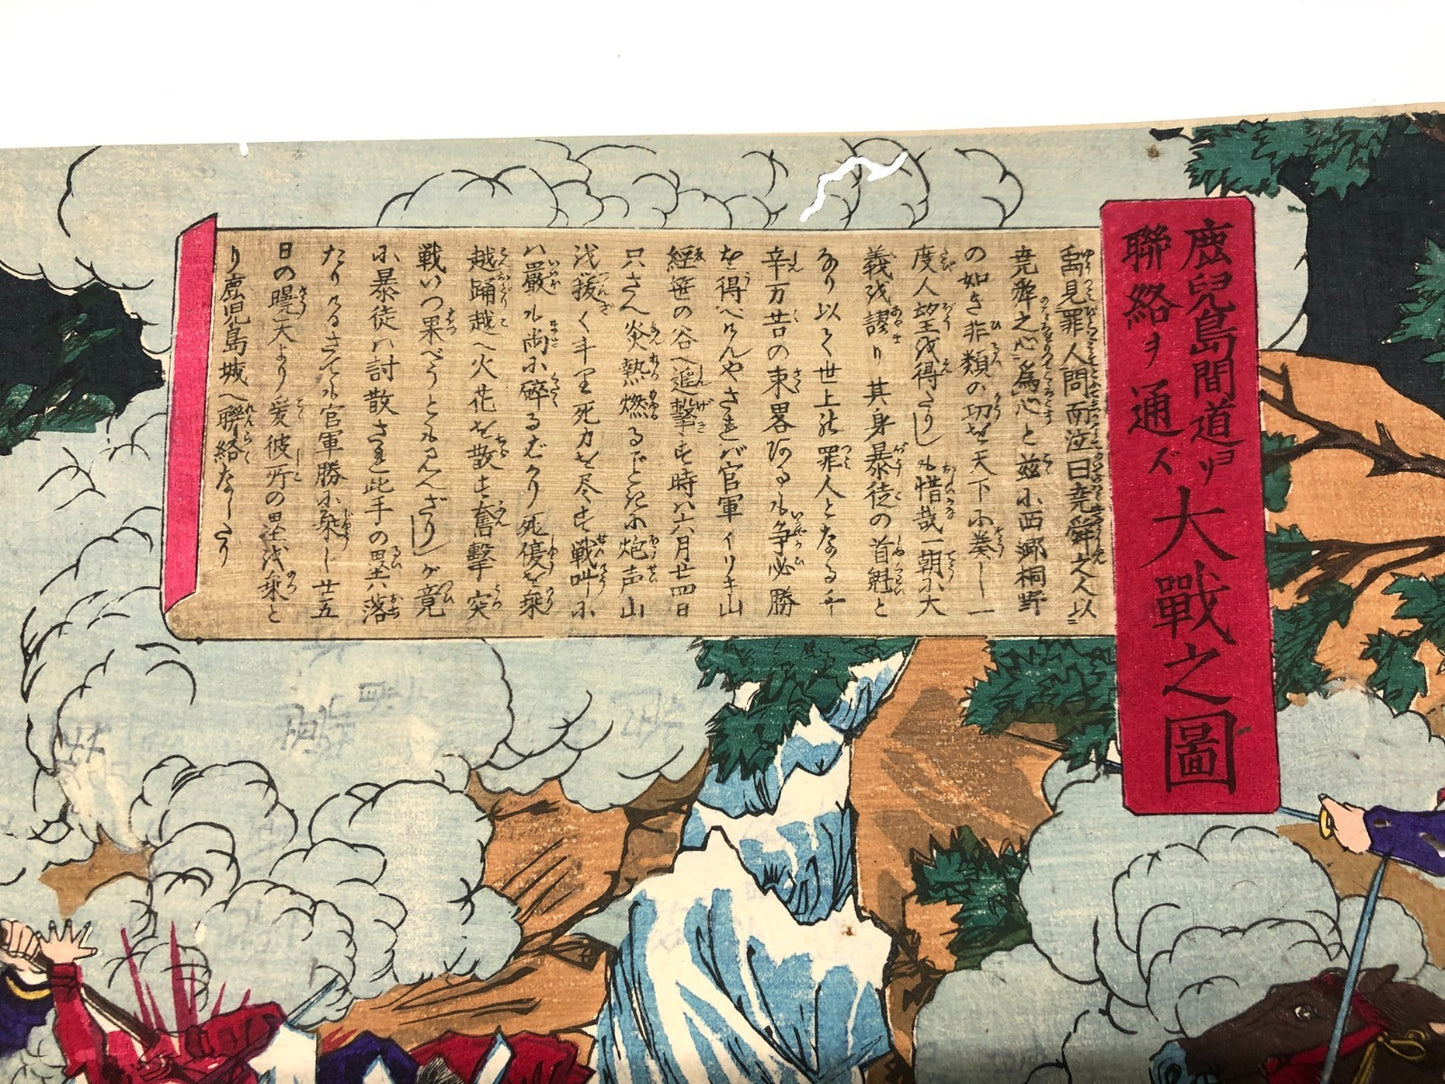 鹿兒島間道ヨリ
聯絡ヲ通ズ
大戰之圖
禹見罪人問而泣曰堯舜之人以
堯舜之心為心と茲に西郷桐野
の如き非類の功を天下に奏し一
度人望を得たりしも惜哉一朝に大
義を謬り其身暴徒の首魁と
なり以て世上の罪人となる千
辛万苦の策畧あるも争必勝
を得べけんやされバ官軍イリキ山
経笹の谷へ追撃す時ハ六月廿四日
只さへ炎熱燃るごときに炮声山
浅を抜く斗り死力を尽す戦叫に
ハ巌も尚に碎るばかり死傷を乗
越踊越へ火花を散す奮撃突
戦いつ果べうとも見へざりしが竟
に暴徒ハ討散され此手の塁ハ落
たりけるさても官軍勝に乗し廿五
日の曉天より爰彼所の塁を乗と
り鹿児島城へ聯絡なしたり